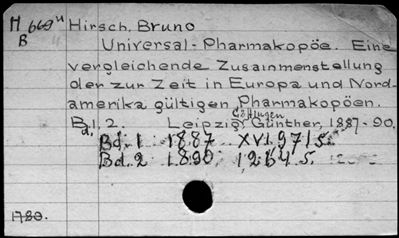 H 669ᵘ Hirsch, Bruno
B
Universal-Pharmakopöe. Eine
vergleichende Zusammenstellung
der zur Zeit in Europa und Nord-
amerika gültigen Pharmakopöen.
Bd. 2. Leipzig, Günther, 1887-90.
Bd. 1 1887 XVI 971 S.
Bd. 2 1890 1264 S.
1780.